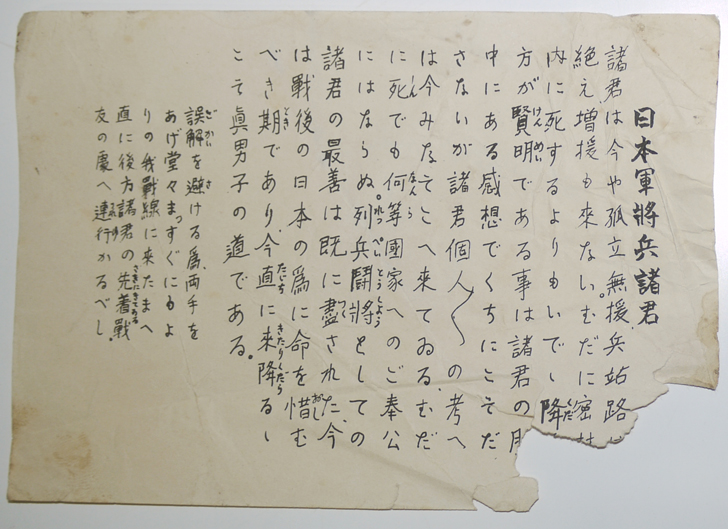 日本軍將兵諸君
諸君は今や孤立無援、兵站路
絶え、増援も來ない。むだに密
内に死するよりもいでゝ降
方が賢明である事は諸君の
中にある感想でくちにこそだ
さないが諸君個人〱の考へ
は今みなそこへ来てゐる、むだ
に死でも何等國家へのご奉公
にはならぬ。列兵鬪將としての
諸君の最善は既に盡された、今
は戰後の日本の爲に命を惜む
べき期であり、今直に来降るゝ
こそ眞男子の道である。
誤解を避ける爲、両手を
あげ堂々まっすぐにもよ
りの我戰線に来たまへ
直に後方諸君の先着戰
友の處へ連行かるべし。